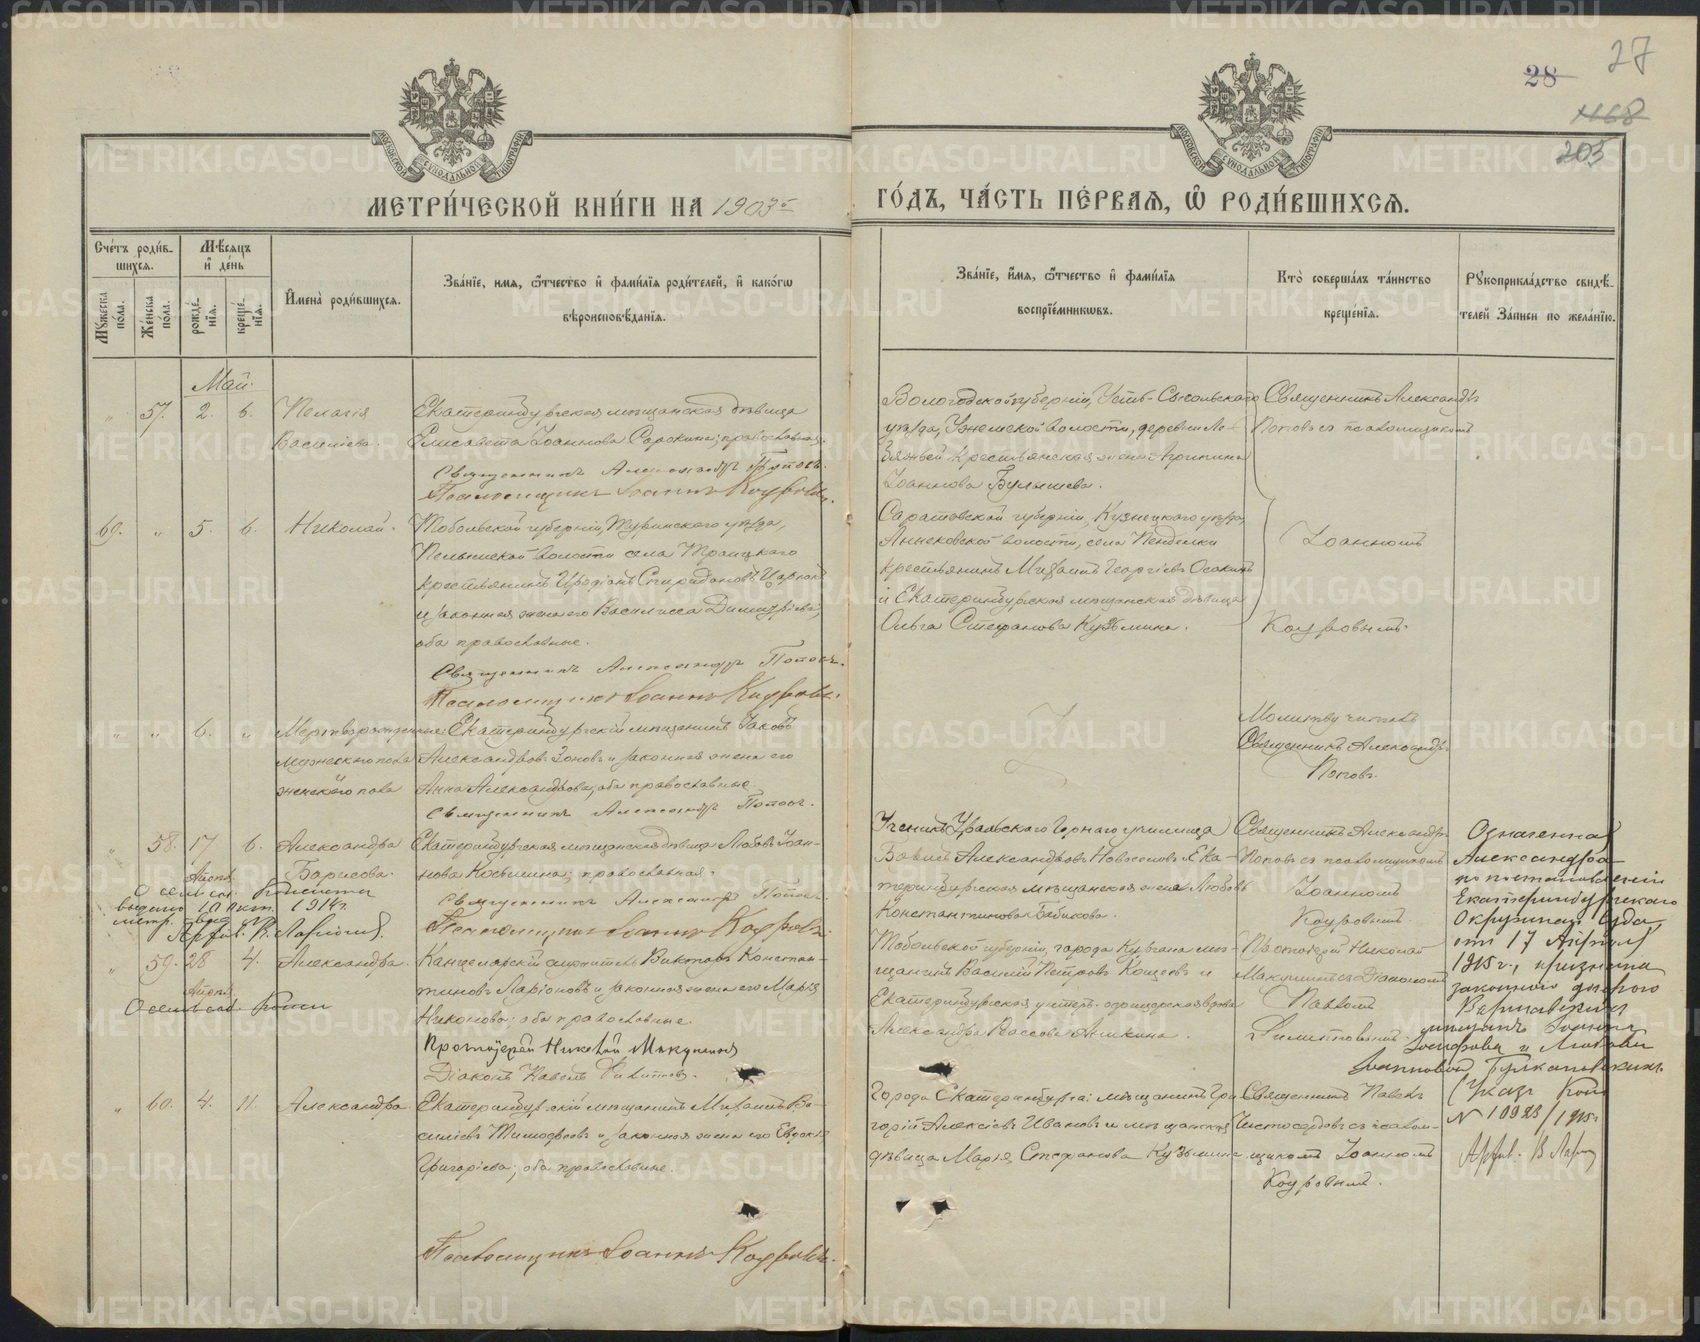 27
28
1168
203
МОСКОВСКОЙ СѴНОДАЛЬНОЙ ТИПОГРАФІИ
МОСКОВСКОЙ СѴНОДАЛЬНОЙ ТИПОГРАФІИ
МЕТРИ́ЧЕСКОЙ КНИ́ГИ НА 1903й ГО́ДЪ, ЧА́СТЬ ПЕ́РВАѦ, Ѿ РОДИ́ВШИХСѦ.
Сче́тъ роди́в-
шихсѧ.
Мѣ́сѧцъ
и де́нь
Му́жеска по́ла.
Же́нска по́ла.
рожде́-
нїѧ.
креще́-
нїѧ.
Имена̀ роди́вшихсѧ.
Зва́нїе, имѧ, ѿтчество и фами́лїѧ роди́телей, и како́гѡ
вѣроисповѣ́данїѧ.
Зва́нїе, и́мѧ, ѿтчество и фами́лїѧ
воспрїе́мникѡвъ.
Кто̀ соверша́лъ та́инство
креще́нїѧ.
Рꙋкоприкла́дство свидѣ́-
телей за́писи по жела́нїю.
Май.
57. 2. 6. Пелагія
Василіева.
Екатеринбургская мѣщанская дѣвица
Елисавета Іоаннова Сорокина; православная.
Священникъ Александръ Поповъ.
Псаломщикъ Іоаннъ Коуровъ.
Вологодской губерніи, Усть-Сысольскаго
уѣзда, деревни
крестьянская жена Агрипина
Іоаннова Булышева.
Священникъ Александръ
Поповъ съ псаломщикомъ
69. " 5. 6. Николай.
Тобольской губерніи, Туринскаго уѣзда,
Пелымской волости села Троицкаго
крестьянинъ Иродіонъ Спиридоновъ
и законная жена его Василисса Димитріева,
оба православные.
Священникъ Александръ Поповъ.
Псаломщикъ Іоаннъ Коуровъ.
Саратовской губерніи, Кузнецкаго уѣзда,
Анненковской волости, села Пенделки
крестьянинъ Михаилъ Георгіевъ Осокинъ
и Екатеринбургская мѣщанская дѣвица
Ольга Стефанова Кузьмина.
Іоанномъ
Коуровымъ.
" " 6. " Мертворожденные:
мужескаго пола
женскаго пола
Екатеринбургскій мѣщанинъ Іаковъ
Александровъ Зоновъ и законная жена его
Анна Александрова, оба православные.
Священникъ Александръ Поповъ.
Молитву читалъ
Священникъ Александръ
Поповъ.
" 58. 17 6. Александра
Апрѣля Борисова.
Екатеринбургская мѣщанская дѣвица Любовь Іоан-
нова Косьмина; православная.
Священникъ Александръ Поповъ.
Псаломщикъ Іоаннъ Коуровъ.
О семъ
выдано 10 окт. 1914г.
метр.
Архив. В. Ларіонов.
Ученикъ Уральскаго Горнаго училища
Александровъ Новоселовъ и Ека-
теринбургская мѣщанская жена Любовь
Константинова Бабикова.
Священникъ Александръ
Поповъ съ псаломщикомъ
Іоанномъ
Коуровымъ.
Означенная
Александра
по постановленію
Екатеринбургскаго
Окружнаго Суда
отъ 17 Апрѣля
1915 г., признана
законною дочерью
Іоанна
Іосифова и Любови
Іоанновой
(Указъ Конс
N 10923/1915г
Архив. В Лар
" 59. 28 4. Александра.
Апрѣля
О семъ
Канцелярскій служитель Викторъ Констан-
тиновъ Ларіоновъ и законная жена его Марія
Никонова; оба православные.
Протоіерей Николай
Діаконъ Павелъ
Тобольской губерніи, города Кургана мѣ-
щанинъ Василій Петровъ Кощеевъ и
Екатеринбургская унтеръ-офицерская вдова
Александра Аникина.
Протоіерей Николай
съ Діакономъ
Павломъ
" 60. 4. 11. Александра.
Екатеринбургскій мѣщанинъ Михаилъ Ва-
силіевъ Тимофеевъ и законная жена его Евдокія
Григоріева; оба православные.
Псаломщикъ Іоаннъ Коуровъ.
Города Екатеринбурга: мѣщанинъ Гри-
горій Алексіевъ Ивановъ и мѣщанская
дѣвица Марія Стефанова Кузьмина.
Священникъ Павелъ
Чистосердовъ съ псалом-
щикомъ Іоанномъ
Коуровымъ.
METRIKI.GASO-URAL.RU